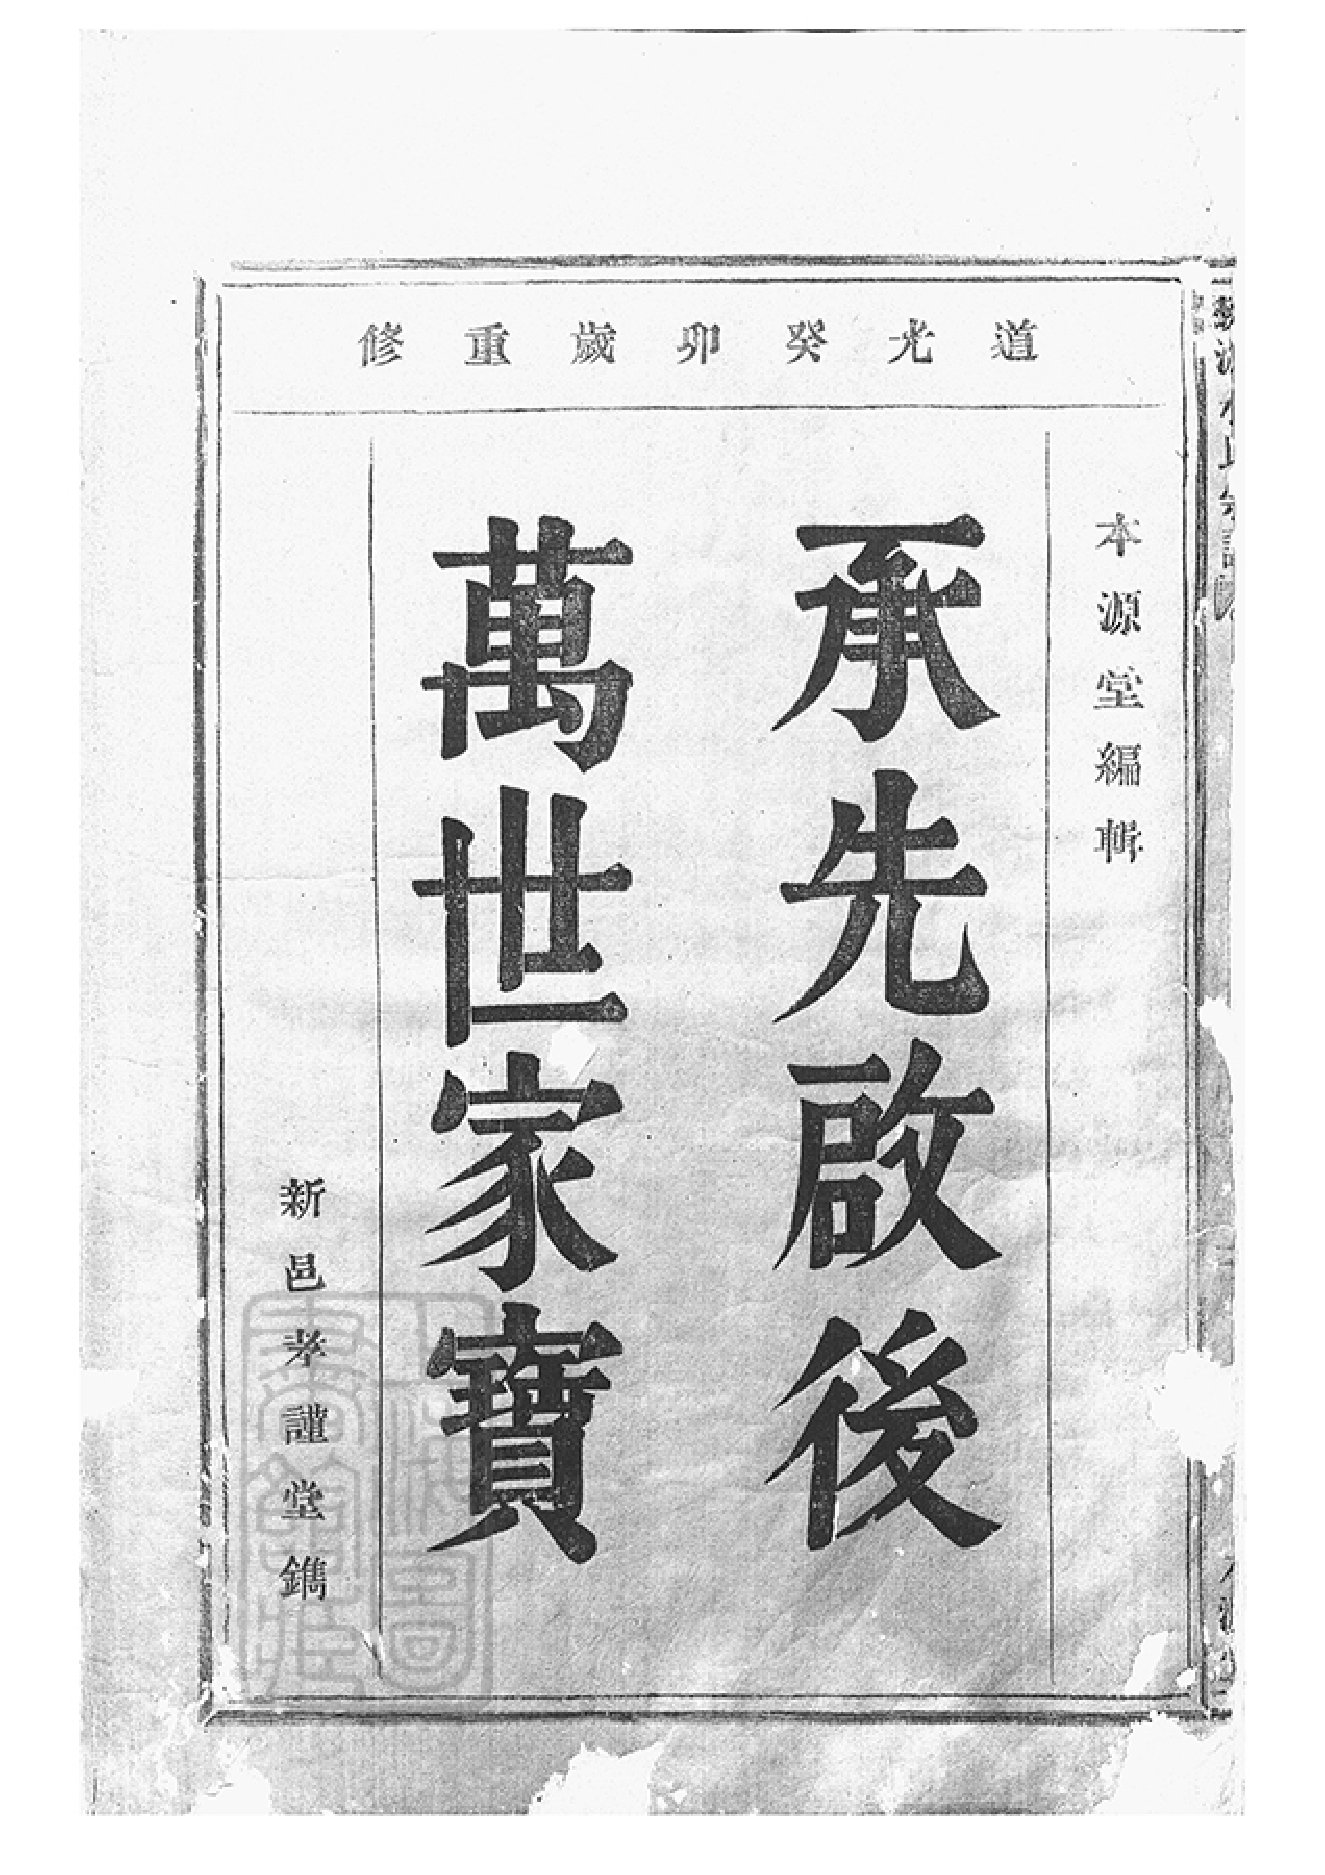 道光癸卯歲重修
本源堂編輯
承先啟後
萬世家寶
新邑孝謹堂鐫